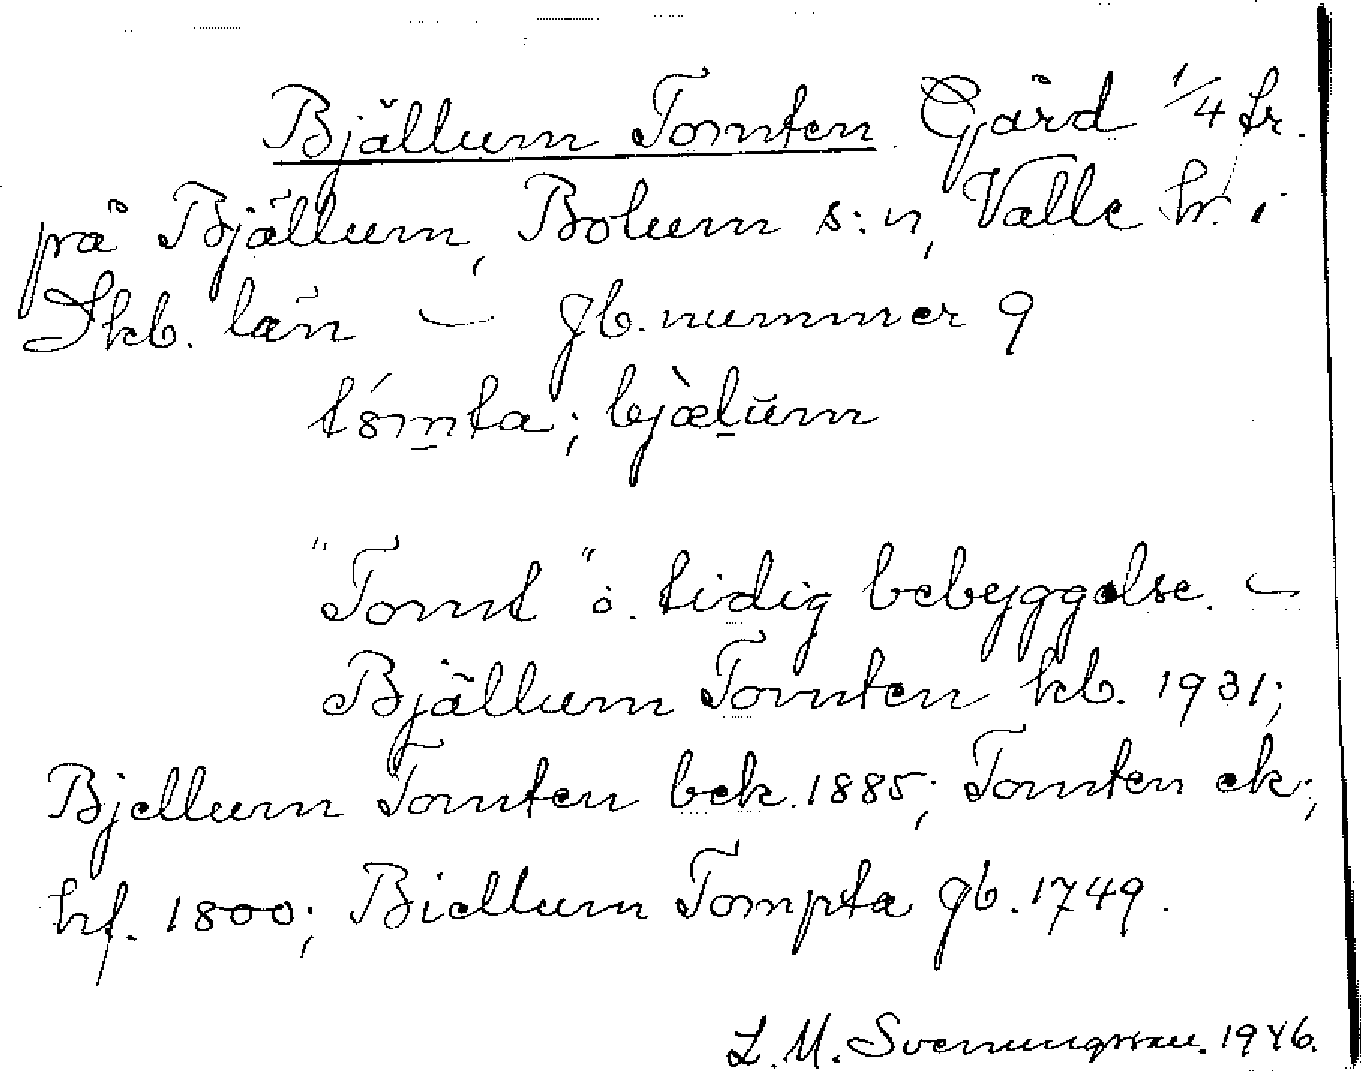 Bjällum Tomten Gård 1/4 fr.
på Bjällum, Bolum s:n, Valle hr. i
Skb. län — gb. nummer 9
tómta; bjælŭm
"Tomt" å. tidig bebyggelse. —
Bjällum Tomten kb. 1931;
Bjellum Tomten bek. 1885; Tomten ek;
hf. 1800; Biellum Tompta gb. 1749.
L. M. Svenungsson. 1946.